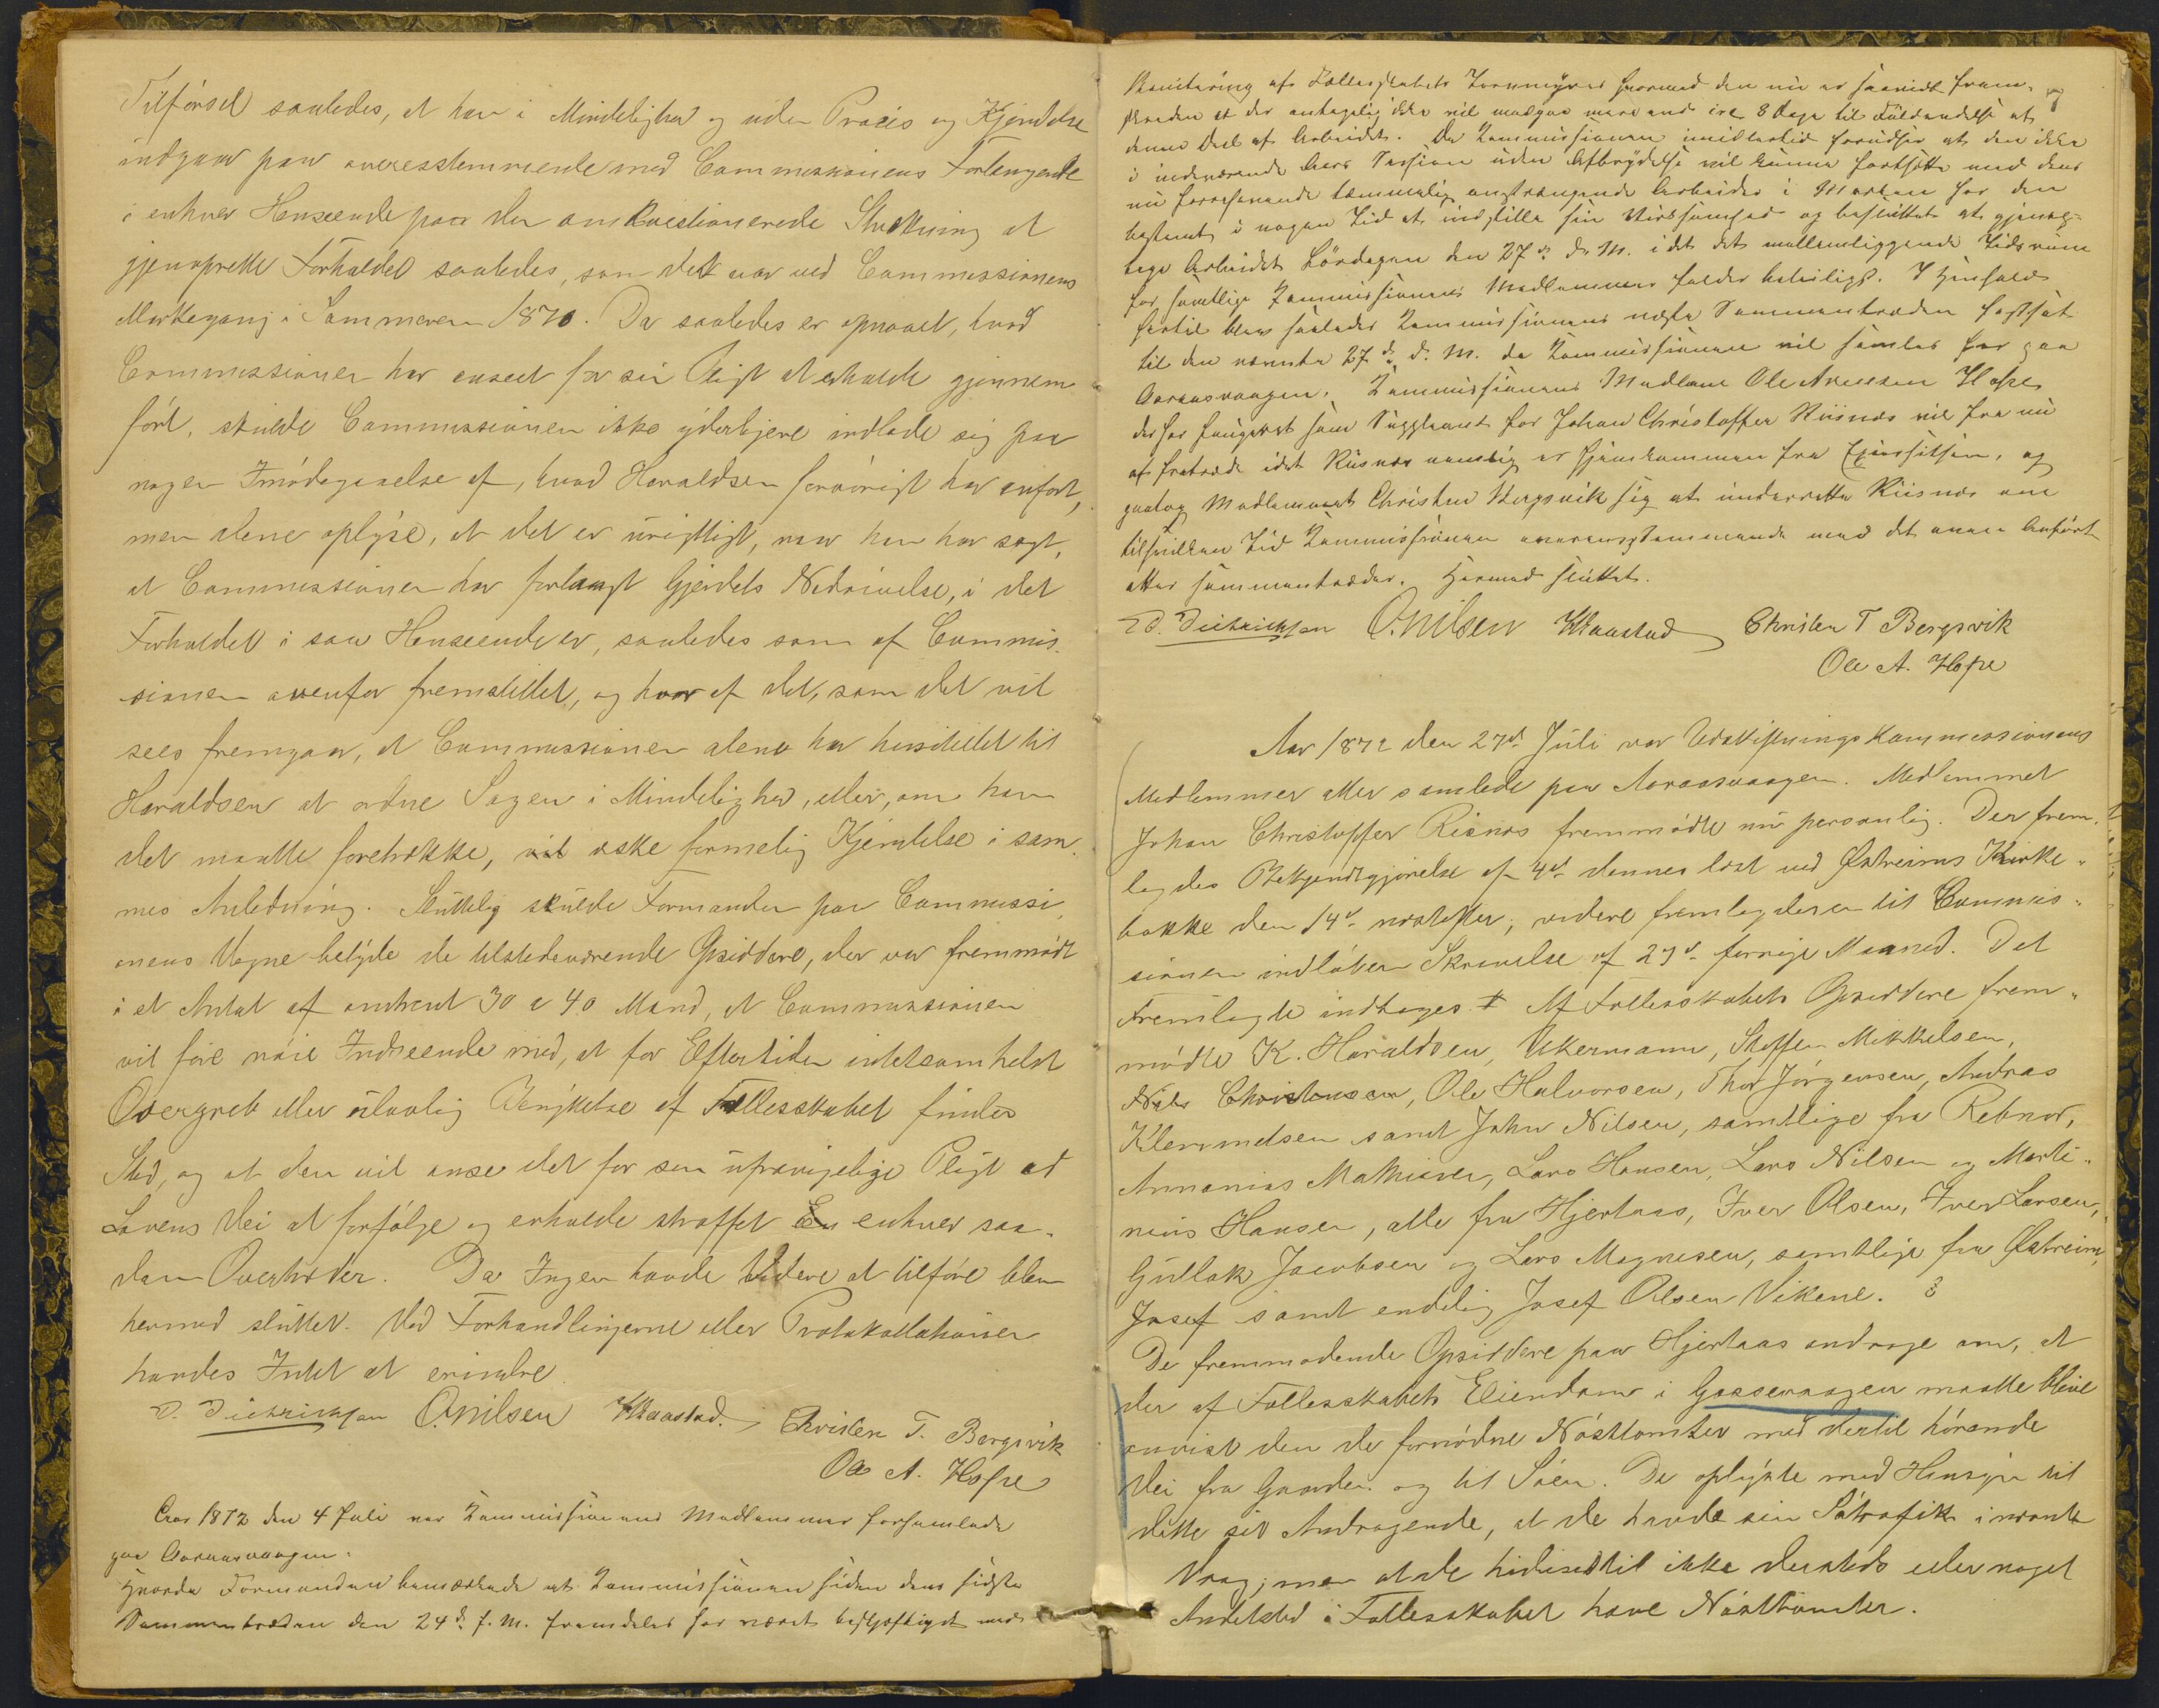 Tilførsel saaledes, at han i Mindelighed og uden Proces og Kjendelse
indgaar paa overeesstemmende med Commissionens Forlangende
i enhver Henseende paa den omkvestionerede Strækning at
gjenoprette Forholdet saaledes, som det var ved Commissionens
Markegang i Sommeren 1870. Da saaledes er opnaaet, hvad
Commissionen har anseet for sin Pligt at erholde gjennem-
ført, skulde Commissionen ikke yderligere indlade sig paa
nogen Imødegaaelse af, hvad Haraldsen forøvrigt har anført,
men alene oplyse, at det er urigtigt, naar han har sagt,
at Commissionen har forlangt Gjerdets Nedrivelse, i det
Forholdet i saa Henseende er, saaledes som af Commis-
sionen ovenfor fremstillet, og hvoraf det, som det vil
sees fremgaar, at Commissionen alene har henstillet til
Haraldsen at ordne Sagen i Mindelighed, eller, om han
det maatte foretrække, at æske formelig Kjendelse i sam-
mes Anledning. Sluttelig skulde Formanden paa Commissi-
onens Vegne betyde de tilstedeværende Opsiddere, der var fremmødt
i et Antal af omtrent 30 a 40 Mand, at Commissionen
vil føre nøie Indseende med, at for Eftertiden intetsomhelst
Overgreb eller ulovlig Benyttelse af Fællesskabet finder
Sted, og at den vil anse det for sin ufravigelige Pligt ad
Lovens Vei at forfølge og erholde straffet enhver saa-
dan Overtræder. Da Ingen havde Videre at tilføre blev
hermed sluttet. Ved Forhandlingerne eller Protokollationen
havdes Intet at erindre.
D. Diedrichsen O. Nilsen Kaastad. Christen T. Bergsvik
Ole A. Hope
Aar 1872 den 4 Juli var Kommissionens Medlemmer forsamlede
paa Aaraasvaagen.
Hvorda Formanden bemærkede at Kommissionen siden dens sidste
Sammentræden den 24de f. M. fremdeles har været beskjæftiget med
Bonitering af Fællesskabets Torvmyrer hvormed den nu er saavidt frem-
skreden at der antagelig ikke vil medgaa mere end ca 8 Dage til Fuldendelse af
denne Deel af Arbeidet. Da Kommissionen imidlertid forudser at den ikke
i indeværende Aars Session uden Afbrydelse vil kunne fortsætte med dens
nu forrehavende temmelig anstrængende Arbeider i Marken har den
bestemt i nogen Tid at indstille sin Virksomhed og besluttet at gjenop-
tage Arbeidet Lørdagen den 27de d. M. idet det mellemliggende Tidsrum
for samtlige Kommissionens Medlemmer falder beleiligst. I Henhold
hertil blev saaledes Kommissionens næste Sammentræden fastsat
til den nævnte 27de d. M. da Kommissionen vil samles her paa
Aaraasvaagen. Kommissionens Medlem Ole Andersen Hope
der har fungeret som Suppleant for Johan Christoffer Risnæs vil fra nu
af fratræde idet Risnæs nemlig er hjemkommen fra Exersitsen, og
paatog Medlemmet Christen Bergsvik sig at underrette Risnæs om
tilhvilken Tid Kommissionen overensstemmende med det oven Anførte
atter sammentræder. Hermed sluttet.
D. Diedrichsen O. Nilsen Kaastad Christen T Bergsvik
Ole A. Hope
Aar 1872 den 27de Juli var Udskiftningskommissionens
Medlemmer atter samlede paa Aaraasvaagen. Medlemmet
Johan Christoffer Risnæs fremmødte nu personlig. Der frem-
lagdes Bekjendtgjørelse af 4de dennes læst ved Østreims Kirke-
bakke den 14de næstefter; videre fremlagdes en til Commis-
sionen indløben Skrivelse af 27de forrige Maaned. Det
Fremlagte indtages. Af Fællesskabets Opsiddere frem-
mødte K. Haraldsen, Akermann, Steffen Mikkelsen,
Nils Christensen, Ole Halvorsen, Thor Jørgensen, Andras
Klemmetsen samt John Nilsen, samtlige fra Rebnor,
Annanias Mathiasen, Lars Hansen, Lars Nilsen og Marti-
nius Hansen, alle fra Hjertaas, Iver Olsen, Iver Larsen,
Gullak Jacobsen og Lars Magnesen, samtlige fra Østreim,
Josef samt endelig Josef Olsen Vikene.
De fremmødende Opsiddere paa Hjertaas androge om, at
der af Fællesskabets Eiendom i Gaasevaagen maatte blive
anvist dem de fornødne Nøsttomter med dertil hørende
Vei fra Gaarden og til Søen. De oplyste med Hensyn til
dette sit Andragende, at de havde sin Søtrafik i nævnte
Vaag; men at de hidindtil ikke dersteds eller noget
Andetsted i Fællesskabet have Nøsttomter.